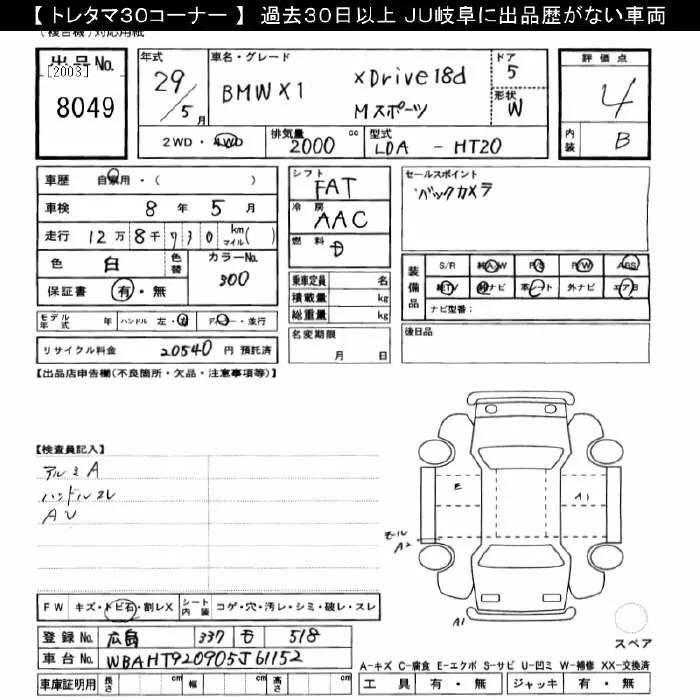 【 トレタマ30コーナー 】 過去30日以上 JU岐阜に出品歴がない車両
(複合機)対応用紙
出品No.
[2003]
8049
年式 29/5月
車名・グレード
BMW X1 xDrive18d
Mスポーツ
ドア 5
形状 W
評価点
4
内装 B
2WD・4WD 排気量 2000 cc 型式 LDA - HT20
車歴 自家用・( )
車検 8年 5月
走行 12万8千730 km マイル( )
色 白 色替 カラーNo. 300
保証書 有・無
シフト FAT
冷房 AAC
燃料
乗車定員 名
積載量 kg
総重量 kg
セールスポイント
バックカメラ
装備品 S/R 純AW P/S P/W ABS
純TV 純ナビ 革シート 外ナビ エアB
ナビ型番:
モデル年式 年 ハンドル 左・右 ・並行
名変期限 月 日
後日品
リサイクル料金 20540 円 預託済
【出品店申告欄(不良箇所・欠品・注意事項等)】
【検査員記入】
アルミA
ハンドルスレ
AU
E
A1
モール A2
A1
スペア
FW キズ・トビ石・割レX シート内装 コゲ・穴・汚レ・シミ・破レ・スレ
登録No. 広島 337 518
車台No. WBAHT920905J61152
A-キズ C-腐食 E-エクボ S-サビ U-凹ミ W-補修 XX-交換済
車庫証明用 長さ cm 幅 cm 高さ cm
工具 有・無 ジャッキ 有・無